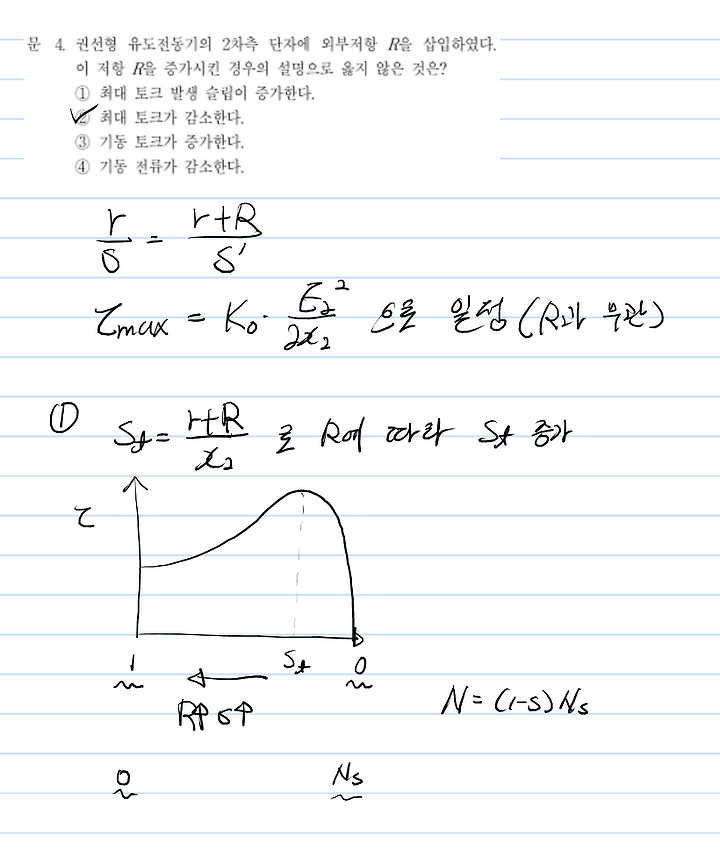 문 4. 권선형 유도전동기의 2차측 단자에 외부저항 R을 삽입하였다.
이 저항 R을 증가시킨 경우의 설명으로 옳지 않은 것은?
① 최대 토크 발생 슬립이 증가한다.
② 최대 토크가 감소한다.
③ 기동 토크가 증가한다.
④ 기동 전류가 감소한다.
r/s = (r+R)/s'
τmax = K₀·E₂²/2x₂ 으로 일정 (R과 무관)
① St = (r+R)/x₂ 로 R에 따라 St 증가
τ
1 St 0
R↑ s↑
N = (1-s)Ns
0 Ns